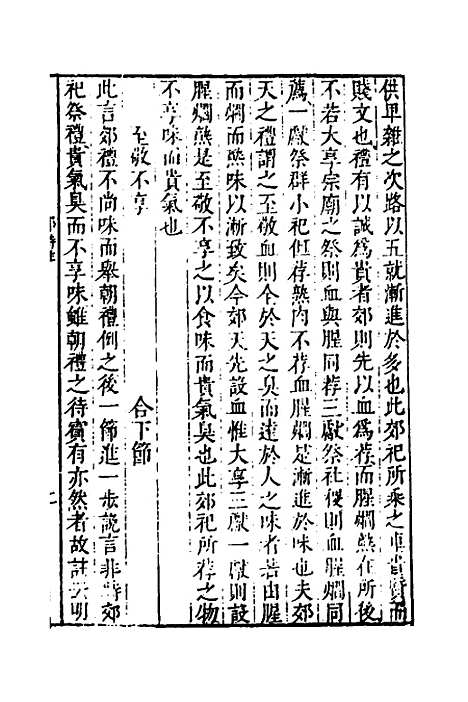 供卑雜之次路以五就漸進於多也此郊祀所乘之車貴質而
賤文也禮有以誠爲貴者郊則先以血爲荐而腥爓熟在所後
不若大享宗廟之祭則血與腥同荐三獻祭社稷則血腥爓同
薦一獻祭群小祀但荐熟肉不荐血腥爓是漸進於味也夫郊
天之禮謂之至敬血則全於天之臭而遠於人之味者若由腥
而爓而熟味以漸致矣今郊天先設血惟大享三獻一獻則設
腥爓熟是至敬不享之以食味而貴氣臭也此郊祀所荐之物
不享味而貴氣也
至敬不享 合下節
此言郊禮不尚味而舉朝禮倒之後一節進一步說言非特郊
祀祭禮貴氣臭而不享味雖朝禮之待賓有亦然者故註云明
郊特牲